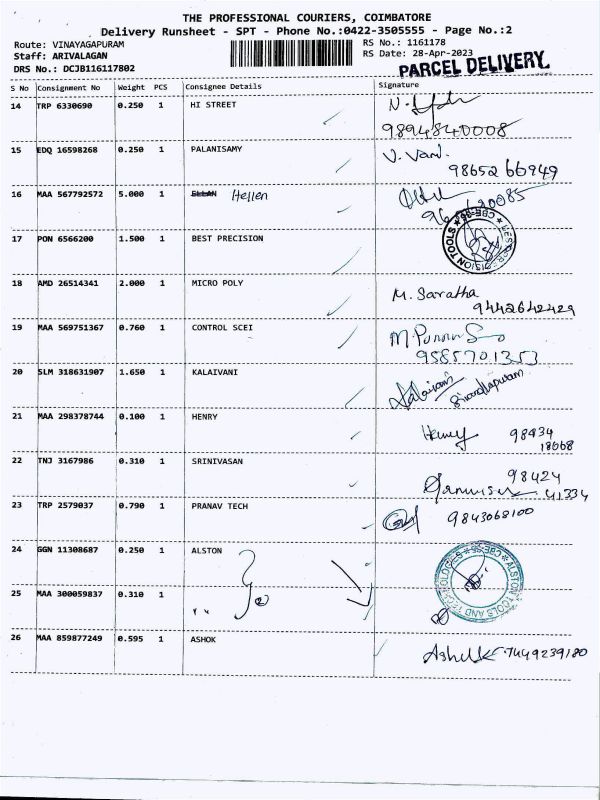 THE PROFESSIONAL COURIERS, COIMBATORE
Delivery Runsheet - SPT - Phone No.:0422-3505555 - Page No.:2
Route: VINAYAGAPURAM
RS No.: 1161178
Staff: ARIVALAGAN
RS Date: 28-Apr-2023
DRS No.: DCJB116117802
PARCEL DELIVERY.
S No Consignment No Weight PCS Consignee Details Signature
14 TRP 6330690 0.250 1 HI STREET
9894840008
15 EDQ 16598268 0.250 1 PALANISAMY V. Vani.
98652 66949
16 MAA 567792572 5.000 1 ELLAN Hellen
17 PON 6566200 1.500 1 BEST PRECISION
18 AMD 26514341 2.000 1 MICRO POLY M. Saratha
9442642429
19 MAA 569751367 0.760 1 CONTROL SCEI
9585701353
20 SLM 318631907 1.650 1 KALAIVANI Kalaivani
21 MAA 298378744 0.100 1 HENRY Henry 98434
18668
22 TNJ 3167986 0.310 1 SRINIVASAN 98424
41334
23 TRP 2579037 0.790 1 PRANAV TECH 9843068100
24 GGN 11308687 0.250 1 ALSTON
ALSTON TOOLS AND TECHNOLOGIES CBE-35
25 MAA 300059837 0.310 1 " "
26 MAA 859877249 0.595 1 ASHOK 7449239180